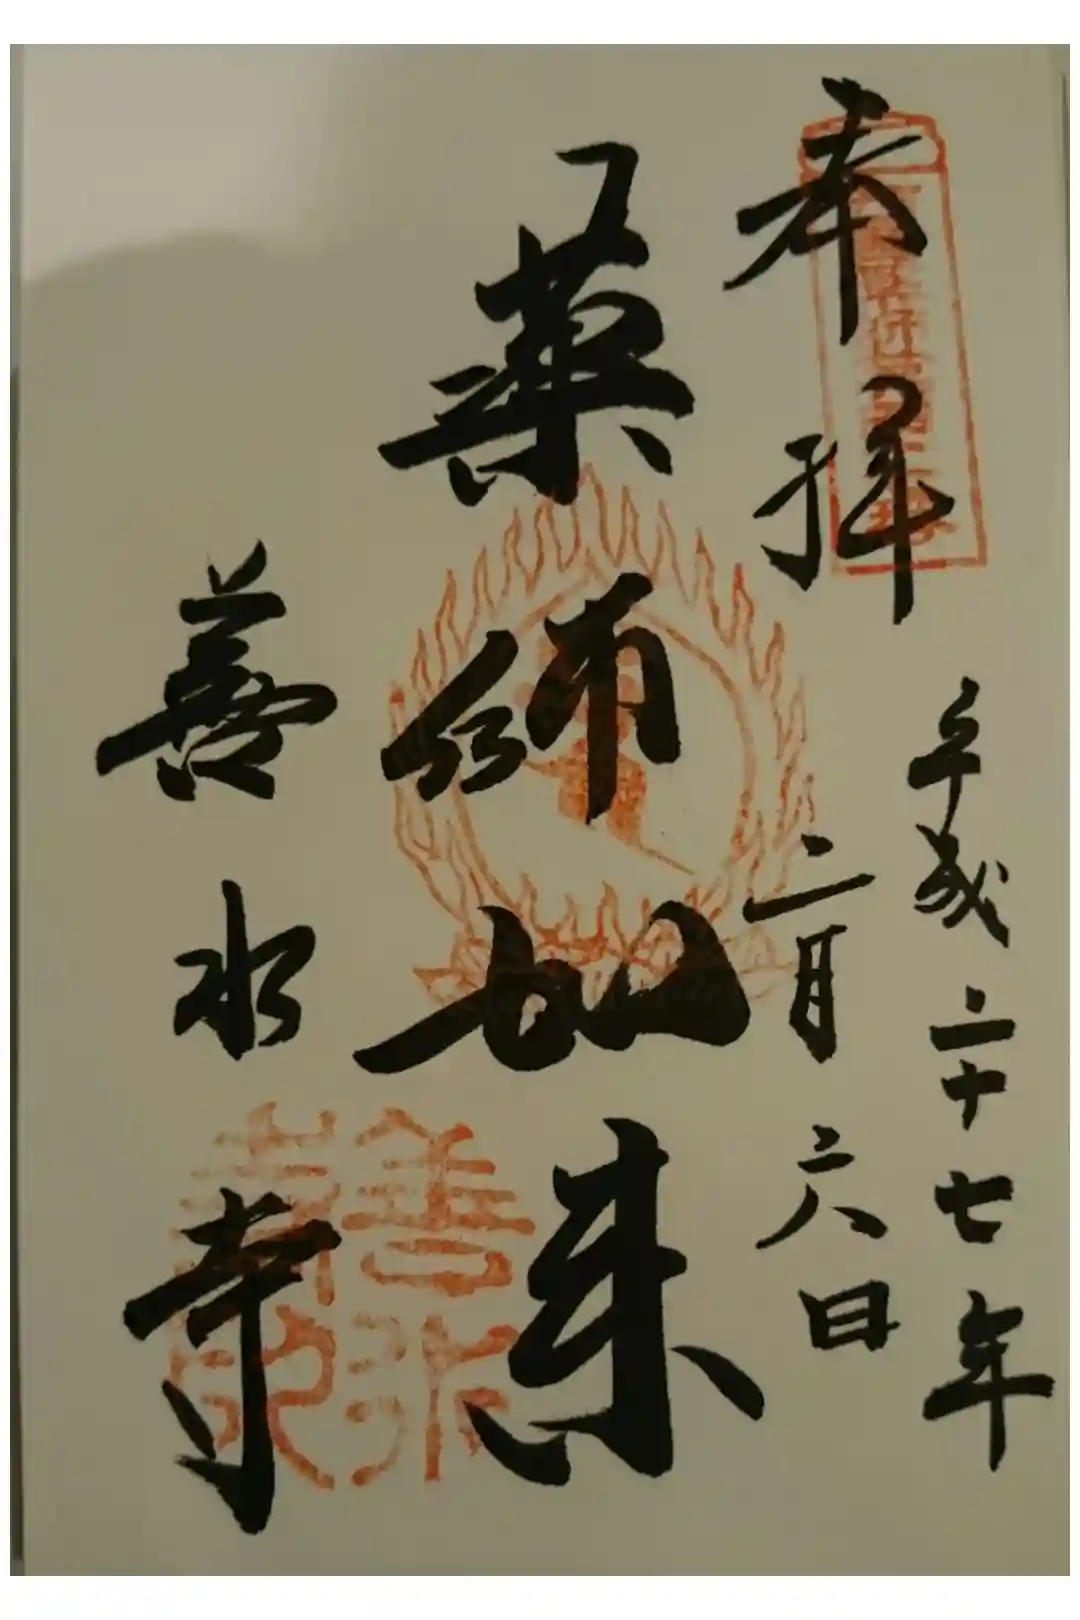 奉拝
平成二十七年
二月六日
薬師如来
善水寺
善水寺印